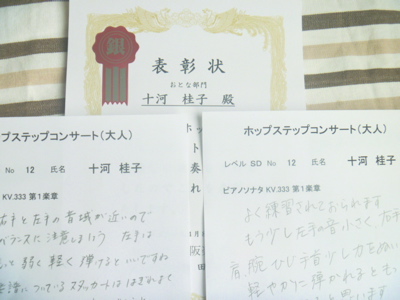 銀
表彰状
おとな部門
十河 桂子 殿
ホッ
ト
奏
れ
月
阪
田
プステップコンサート(大人)
No 12 氏名 十河 桂子
KV.333 第1楽章
右手と左手の音域が近いので
バランスに注意しましょう 左手は
もっと弱く軽く弾けるといいですね
楽譜についているスタッカートははぎれよく
ホップステップコンサート(大人)
レベル SD No 12 氏名 十河 桂子
ピアノソナタ KV.333 第1楽章
よく練習されておられます
もう少し左手の音小さく、右手
肩、腕、ひじ手首 少し力をぬい
軽やかに弾かれるとも